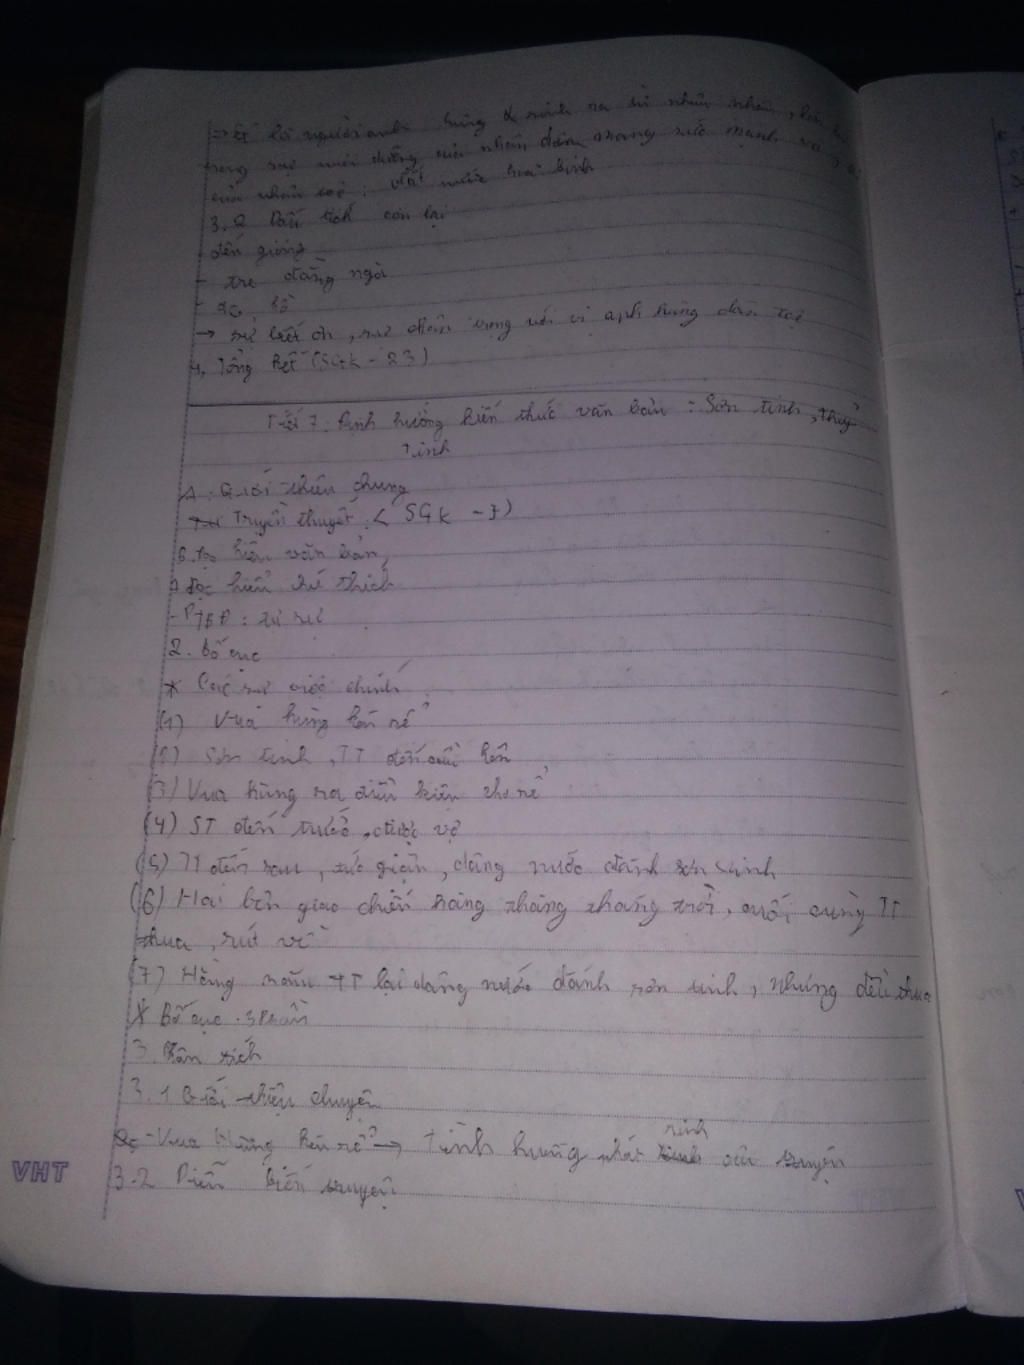 → là người anh hùng sinh ra từ nhân dân,
trong sự nuôi dưỡng của nhân dân, mang sức mạnh
của nhân dân hoà bình
3.2 Dấu tích còn lại
- đền gióng
- tre đằng ngà
- ao, hồ
→ sự biết ơn, sự chân trọng với vị anh hùng dân tộc
4. Tổng kết (SGK - 23)
Tiết 7: Định hướng kiến thức văn bản: Sơn tinh, thủy
tinh
A. Giới thiệu chung
Truyền thuyết: ( SGK - 7)
B. đọc hiểu văn bản
1 đọc hiểu chú thích
- PTBĐ: tự sự
2. Bố cục
* Các sự việc chính
(1) Vua hùng kén rể
(2) Sơn tinh, TT đến cầu hôn
(3) Vua hùng ra điều kiện chọn rể
(4) ST đến trước, được vợ
(5) TT đến sau, tức giận, dâng nước đánh sơn tinh
(6) Hai bên giao chiến hàng tháng tháng trời, cuối cùng TT
thua, rút về
(7) Hằng năm TT lại dâng nước đánh sơn tinh, nhưng đều thua
* Bố cục: 3 phần
3. Phân tích
3.1 Giới thiệu chuyện
- Vua Hùng kén rể → tình huống phát sinh của truyện
3.2 Diễn biến truyện
VHT